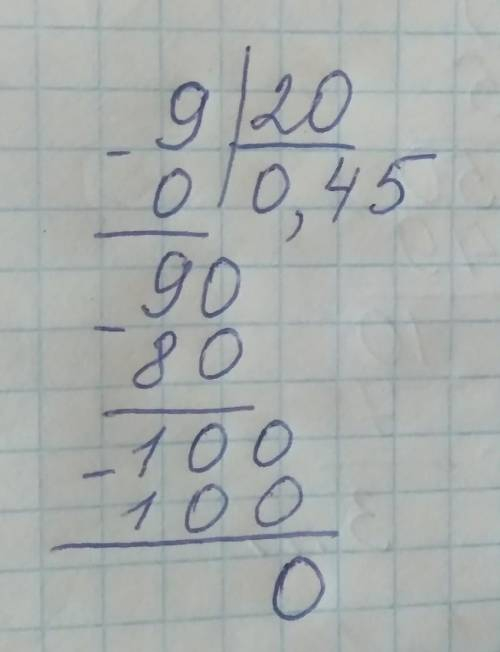 - 9 | 20
0 | 0,45
90
- 80
- 100
100
0